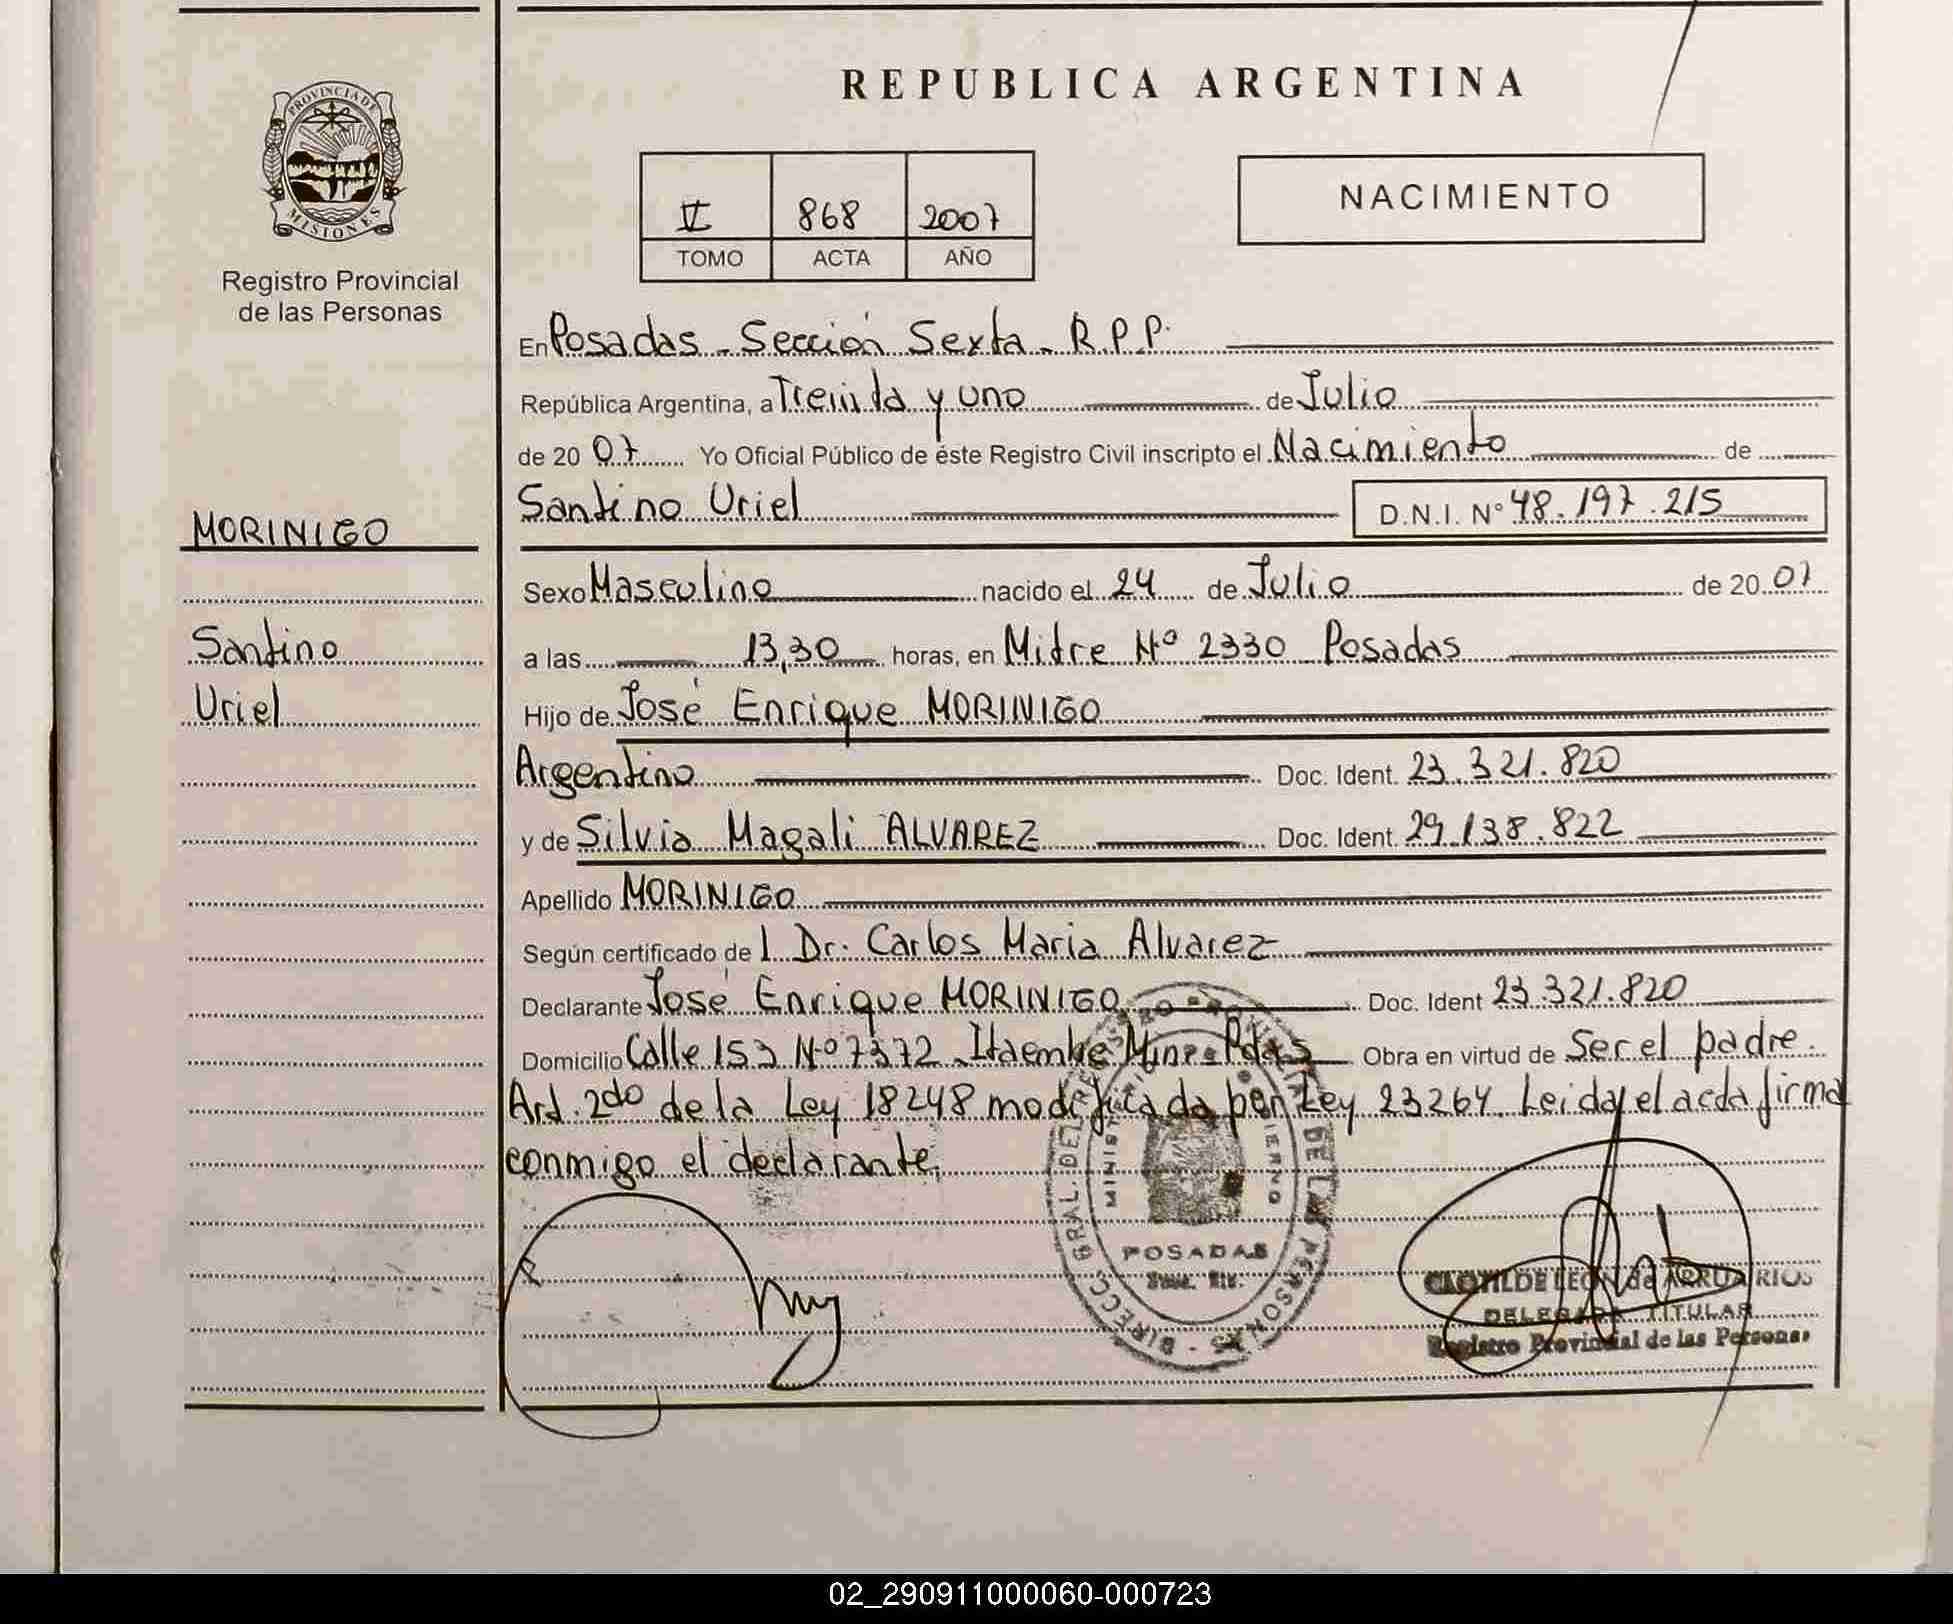 PROVINCIA DE
MISIONES
Registro Provincial
de las Personas
MORINIGO
Santino
Uriel
REPUBLICA ARGENTINA
V 868 2007
TOMO ACTA AÑO
NACIMIENTO
En Posadas - Sección Sexta - R.P.P.
República Argentina, a Treinta y uno de Julio
de 20 07 Yo Oficial Público de éste Registro Civil inscripto el Nacimiento de
Santino Uriel D.N.I. N° 48.197.215
Sexo Masculino nacido el 24 de Julio de 20 07
a las 13,30 horas, en Mitre Nº 2330 Posadas
Hijo de José Enrique MORINIGO
Argentino Doc. Ident. 23.321.820
y de Silvia Magali ALVAREZ Doc. Ident. 29.138.822
Apellido MORINIGO
Según certificado de l Dr. Carlos Maria Alvarez
Declarante José Enrique MORINIGO Doc. Ident 23.321.820
Domicilio Calle 153 Nº 7372 - Itaembe Mini - Pdas Obra en virtud de Ser el padre.
Art. 2do de la Ley 18248 modificada por Ley 23264. Leida el acta firma
conmigo el declarante,
DIRECC. GRAL. DEL REGISTRO PROVINCIAL DE LAS PERSONAS
MINISTERIO DE GOBIERNO
POSADAS
CLOTILDE LEON de ARRUA RIOS
DELEGADA TITULAR
Registro Provincial de las Personas
02_290911000060-000723